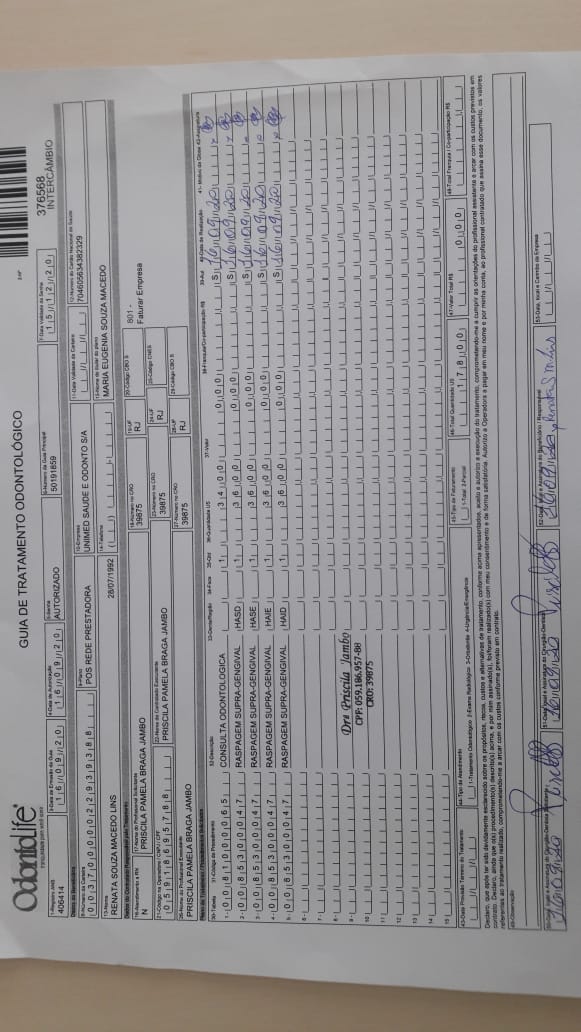 OdontoLife
GUIA DE TRATAMENTO ODONTOLÓGICO
376568
INTERCÂMBIO
1-Registro ANS
406414
2-Data de Emissão da Guia
16/09/20
4-Data de Autorização
16/09/20
5-Senha
AUTORIZADO
6-Número da Guia Principal
50191659
7-Data Validade da Senha
15/12/20
Dados do Beneficiário
8-Número da Carteira
9-Plano
POS REDE PRESTADORA
10-Empresa
UNIMED SAUDE E ODONTO S/A
11-Data Validade da Carteira
12-Número do Cartão Nacional de Saúde
704605634382329
13-Nome
RENATA SOUZA MACEDO LINS
28/07/1992
14-Telefone
15-Nome do titular do plano
MARIA EUGENIA SOUZA MACEDO
16-Atendimento a RN
N
17-Nome do Profissional Solicitante
PRISCILA PAMELA BRAGA JAMBO
18-Número no CRO
39875
19-UF
RJ
20-Código CBO S
801 -
Faturar Empresa
21-Código na Operadora / CNPJ / CPF
05918695788
22-Nome do Contratado Executante
PRISCILA PAMELA BRAGA JAMBO
23-Número no CRO
39875
24-UF
RJ
25-Código CNES
26-Nome do Profissional Executante
PRISCILA PAMELA BRAGA JAMBO
27-Número no CRO
39875
28-UF
RJ
29-Código CBO S
30-Tabela 31-Código do Procedimento 32-Descrição 33-Dente/Região 34-Face 35-Qtd 36-Quantidade US 37-Valor 38-Franquia/Co-participação R$ 39-Aut 40-Data de Realização 41-Motivo da Glosa 42-Assinatura
1- 00 81000065 CONSULTA ODONTOLOGICA 1 34,00 0,00 S 16/09/20
2- 00 85300047 RASPAGEM SUPRA-GENGIVAL HASD 1 36,00 0,00 S 16/09/20
3- 00 85300047 RASPAGEM SUPRA-GENGIVAL HASE 1 36,00 0,00 S 16/09/20
4- 00 85300047 RASPAGEM SUPRA-GENGIVAL HAIE 1 36,00 0,00 S 16/09/20
5- 00 85300047 RASPAGEM SUPRA-GENGIVAL HAID 1 36,00 0,00 S 16/09/20
6-
7-
8-
9-
10
11
12
13
14
15
Dra Priscila Jambo
CPF: 059.186.957-88
CRO: 39875
43-Data Previsão Término do Tratamento
44-Tipo de Atendimento
1-Tratamento Odontológico 2-Exame Radiológico 3-Ortodontia 4-Urgência/Emergência
45-Tipo de Faturamento
1-Total 2-Parcial
46-Total Quantidade US
178,00
47-Valor Total R$
0,00
48-Total Franquia / Co-participação R$
Declaro, que após ter sido devidamente esclarecido sobre os propósitos, riscos, custos e alternativas de tratamento, conforme acima apresentados, aceito e autorizo a execução do tratamento, comprometendo-me a cumprir as orientações do profissional assistente e arcar com os custos previstos em
contrato. Declaro, ainda que o(s) procedimento(s) descrito(s) acima, e por mim assinado(s), foi/foram realizado(s) com meu consentimento e de forma satisfatória. Autorizo a Operadora a pagar em meu nome e por minha conta, ao profissional contratado que assina esse documento, os valores
referentes ao tratamento realizado, comprometendo-me a arcar com os custos conforme previsto em contrato.
49-Observação
51-Data e Assinatura do Cirurgião-Dentista
52-Data e Assinatura do Beneficiário / Responsável
53-Data, local e Carimbo da Empresa